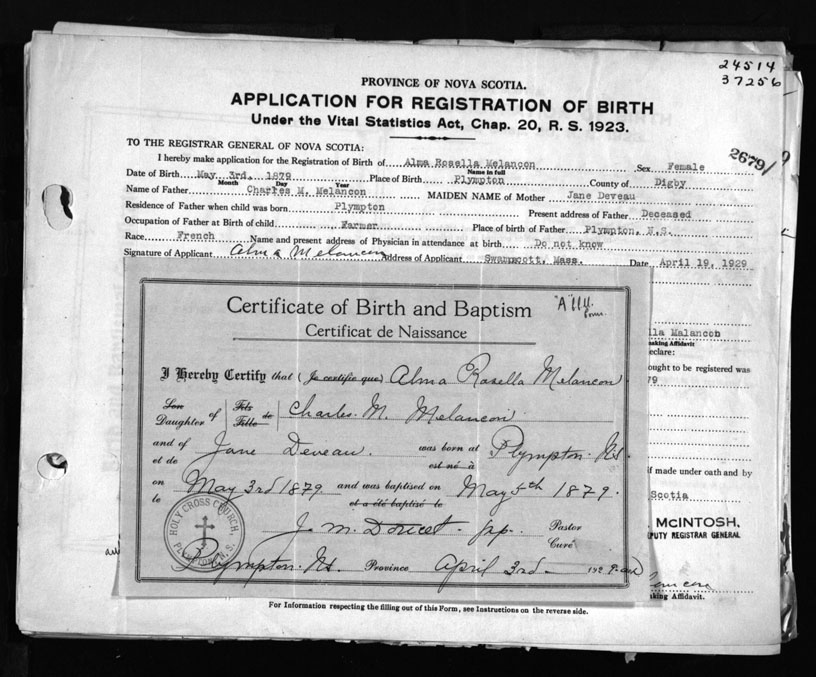 24514
37256
PROVINCE OF NOVA SCOTIA.
APPLICATION FOR REGISTRATION OF BIRTH
Under the Vital Statistics Act, Chap. 20, R. S. 1923.
TO THE REGISTRAR GENERAL OF NOVA SCOTIA:
2679/
I hereby make application for the Registration of Birth of Alma Rosella Melancon Sex Female
Name in full
Date of Birth May 3rd. 1879 Place of Birth Plympton County of Digby
Month Day Year
Name of Father Charles M. Melancon MAIDEN NAME of Mother Jane Deveau
Residence of Father when child was born Plympton Present address of Father Deceased
Occupation of Father at Birth of child Farmer Place of birth of Father Plympton, N.S.
Race French Name and present address of Physician in attendance at birth Do not know
Signature of Applicant Alma Melancon Address of Applicant Swampscott, Mass. Date April 19, 1929
Certificate of Birth and Baptism
"A"
Certificat de Naissance
lla Malancon
aking Affidavit
eclare:
ought to be registered was
79
I Hereby Certify that (Je certifie que) Alma Rosella Melancon
Son
Daughter of Fils
Fille de Charles. M. Melancon
and of
et de Jane Deveau. was born at
est né à Plympton N.S.
if made under oath and by
on
le May 3rd 1879 and was baptised on
et a été baptisé le May 5th 1879.
Scotia
HOLY CROSS CHURCH,
PLYMPTON, N.S.
J. M. Doucet. p.p. Pastor
Curé
MCINTOSH,
PUTY REGISTRAR GENERAL
Plympton. N.S. Province April 3rd 1929
aking Affidavit.
For Information respecting the filling out of this Form, see Instructions on the reverse side.